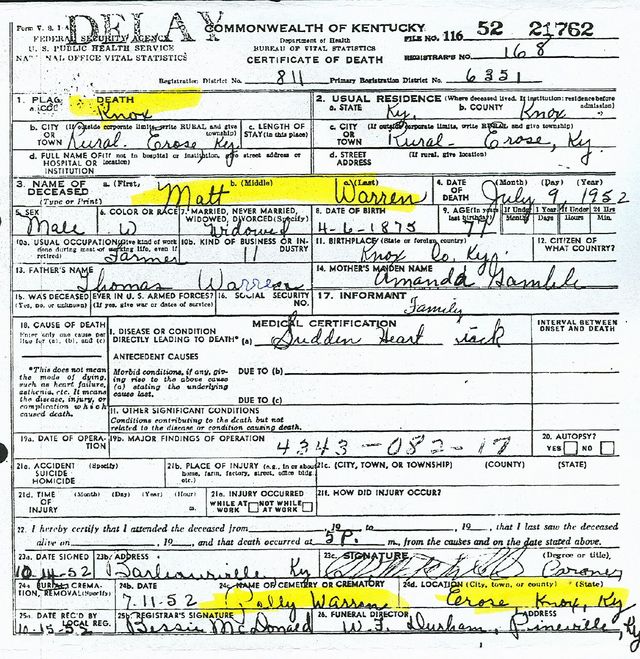 DELAY
Form V. S. 1-A
COMMONWEALTH OF KENTUCKY
FEDERAL SECURITY AGENCY
U. S. PUBLIC HEALTH SERVICE
NATIONAL OFFICE VITAL STATISTICS
Department of Health
BUREAU OF VITAL STATISTICS
CERTIFICATE OF DEATH
FILE NO. 116 52 21762
REGISTRAR'S NO. 168
Registration District No. 811 Primary Registration District No. 6351
1. PLAC DEATH
a. COU Knox
2. USUAL RESIDENCE (Where deceased lived. If institution: residence before admission)
a. STATE Ky. b. COUNTY Knox
b. CITY (If outside corporate limits, write RURAL and give township) OR TOWN Rural - Erose, Ky
c. LENGTH OF STAY (in this place)
c. CITY (If outside corporate limits, write RURAL and give township) OR TOWN Rural - Erose, Ky.
d. FULL NAME OF (If not in hospital or institution, give street address or location) HOSPITAL OR INSTITUTION
d. STREET ADDRESS (If rural, give location)
3. NAME OF DECEASED (Type or Print)
a. (First) Matt b. (Middle) c. (Last) Warren
4. DATE OF DEATH (Month) (Day) (Year) July 9 1952
5. SEX Male
6. COLOR OR RACE W
7. MARRIED, NEVER MARRIED, WIDOWED, DIVORCED (Specify) Widowed
8. DATE OF BIRTH 4-6-1875
9. AGE (In years last birthday) 77
If Under 1 Year Months Days
If Under 24 Hrs Hours Min.
10a. USUAL OCCUPATION (Give kind of work done during most of working life, even if retired) Farmer
10b. KIND OF BUSINESS OR INDUSTRY 11
11. BIRTHPLACE (State or foreign country) Knox Co. Ky.
12. CITIZEN OF WHAT COUNTRY?
13. FATHER'S NAME Thomas Warren
14. MOTHER'S MAIDEN NAME Amanda Gamble
15. WAS DECEASED EVER IN U. S. ARMED FORCES? (Yes, no, or unknown) (If yes, give war or dates of service)
16. SOCIAL SECURITY NO.
17. INFORMANT Family
18. CAUSE OF DEATH
Enter only one cause per line for (a), (b), and (c)
MEDICAL CERTIFICATION
INTERVAL BETWEEN ONSET AND DEATH
I. DISEASE OR CONDITION DIRECTLY LEADING TO DEATH* (a) Sudden Heart
*This does not mean the mode of dying, such as heart failure, asthenia, etc. It means the disease, injury, or complication which caused death.
ANTECEDENT CAUSES
Morbid conditions, if any, giving rise to the above cause (a) stating the underlying cause last.
DUE TO (b)
DUE TO (c)
II. OTHER SIGNIFICANT CONDITIONS
Conditions contributing to the death but not related to the disease or condition causing death.
19a. DATE OF OPERATION
19b. MAJOR FINDINGS OF OPERATION
4343-082-17
20. AUTOPSY?
YES NO
21a. ACCIDENT SUICIDE HOMICIDE (Specify)
21b. PLACE OF INJURY (e.g., in or about home, farm, factory, street, office bldg. etc.)
21c. (CITY, TOWN, OR TOWNSHIP) (COUNTY) (STATE)
21d. TIME OF INJURY (Month) (Day) (Year) (Hour) m.
21e. INJURY OCCURRED WHILE AT WORK NOT WHILE AT WORK
21f. HOW DID INJURY OCCUR?
22. I hereby certify that I attended the deceased from , 19 to , 19 , that I last saw the deceased
alive on , 19 , and that death occurred at 5P. m., from the causes and on the date stated above.
23a. DATE SIGNED 10-14-52
23b. ADDRESS Barbourville Ky
23c. SIGNATURE (Degree or title) Coroner
24a. BURIAL, CREMATION, REMOVAL (Specify)
24b. DATE 7-11-52
24c. NAME OF CEMETERY OR CREMATORY Polly Warren
24d. LOCATION (City, town, or county) (State) Erose, Knox, Ky
25a. DATE REC'D BY LOCAL REG. 10-15-52
25b. REGISTRAR'S SIGNATURE Bessie McDonald
26. FUNERAL DIRECTOR ADDRESS W. T. Durham, Pineville, Ky